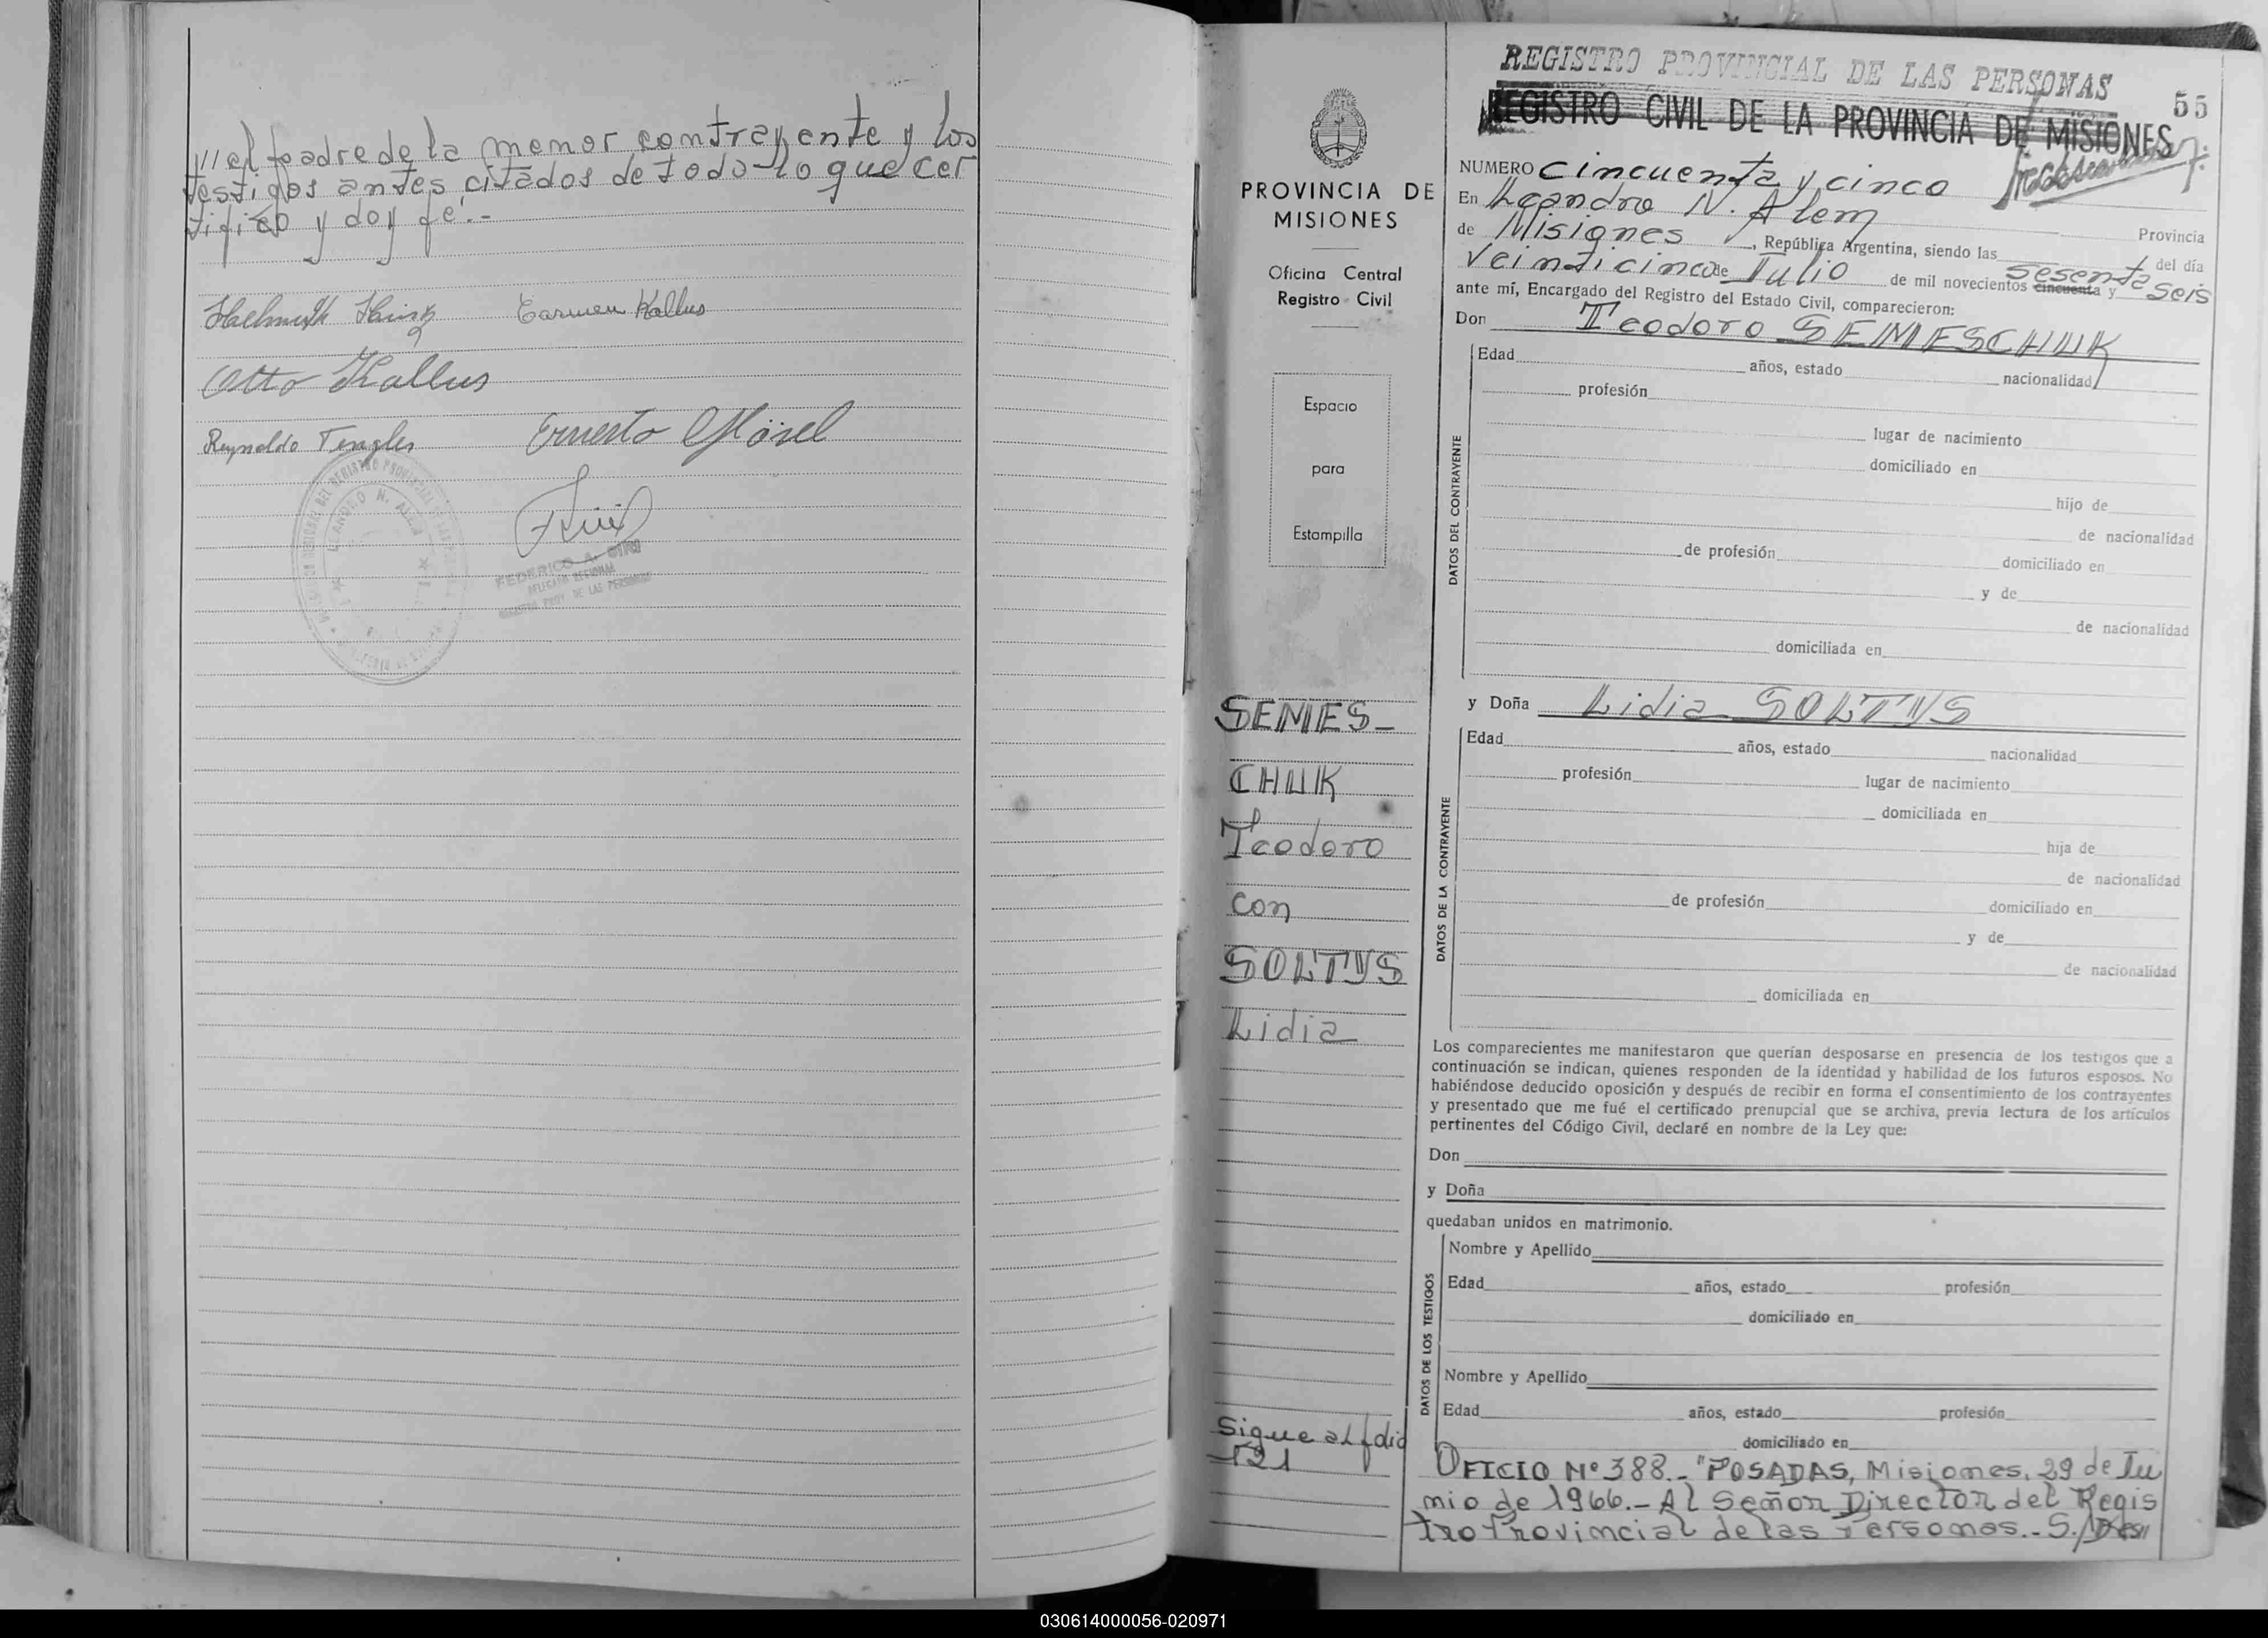 /// el padre de la menor contrayente y los
testigos antes citados de todo lo que cer
tifico y doy fe.-
Carmen Kallus
Otto Kallus
Reynoldo Ernesto
FEDERICO A. SIRI
DELEGADO REGIONAL
REGISTRO PROV. DE LAS PERSONAS
LEANDRO N. ALEM
PROVINCIA DE
MISIONES
Oficina Central
Registro Civil
Espacio
para
Estampilla
SEMES-
CHUK
Teodoro
con
SOLTYS
Lidia
Sigue al folio
121
REGISTRO PROVINCIAL DE LAS PERSONAS
55
REGISTRO CIVIL DE LA PROVINCIA DE MISIONES
NUMERO cincuenta y cinco
En Leandro N. Alem Provincia
de Misiones, República Argentina, siendo las del día
Veinticinco de Julio de mil novecientos cincuenta y sesenta seis
ante mí, Encargado del Registro del Estado Civil, comparecieron:
Don Teodoro SEMESCHUK
DATOS DEL CONTRAYENTE
Edad años, estado nacionalidad
profesión
lugar de nacimiento
domiciliado en
hijo de
de nacionalidad
de profesión domiciliado en
y de
de nacionalidad
domiciliada en
y Doña Lidia SOLTYS
DATOS DE LA CONTRAYENTE
Edad años, estado nacionalidad
profesión lugar de nacimiento
domiciliada en
hija de
de nacionalidad
de profesión domiciliado en
y de
de nacionalidad
domiciliada en
Los comparecientes me manifestaron que querían desposarse en presencia de los testigos que a
continuación se indican, quienes responden de la identidad y habilidad de los futuros esposos. No
habiéndose deducido oposición y después de recibir en forma el consentimiento de los contrayentes
y presentado que me fué el certificado prenupcial que se archiva, previa lectura de los artículos
pertinentes del Código Civil, declaré en nombre de la Ley que:
Don
y Doña
quedaban unidos en matrimonio.
DATOS DE LOS TESTIGOS
Nombre y Apellido
Edad años, estado profesión
domiciliado en
Nombre y Apellido
Edad años, estado profesión
domiciliado en
OFICIO Nº 388.- "POSADAS, Misiones, 29 de Ju
nio de 1966.- Al Señor Director del Regis
tro Provincial de las Personas.- S./
030614000056-020971